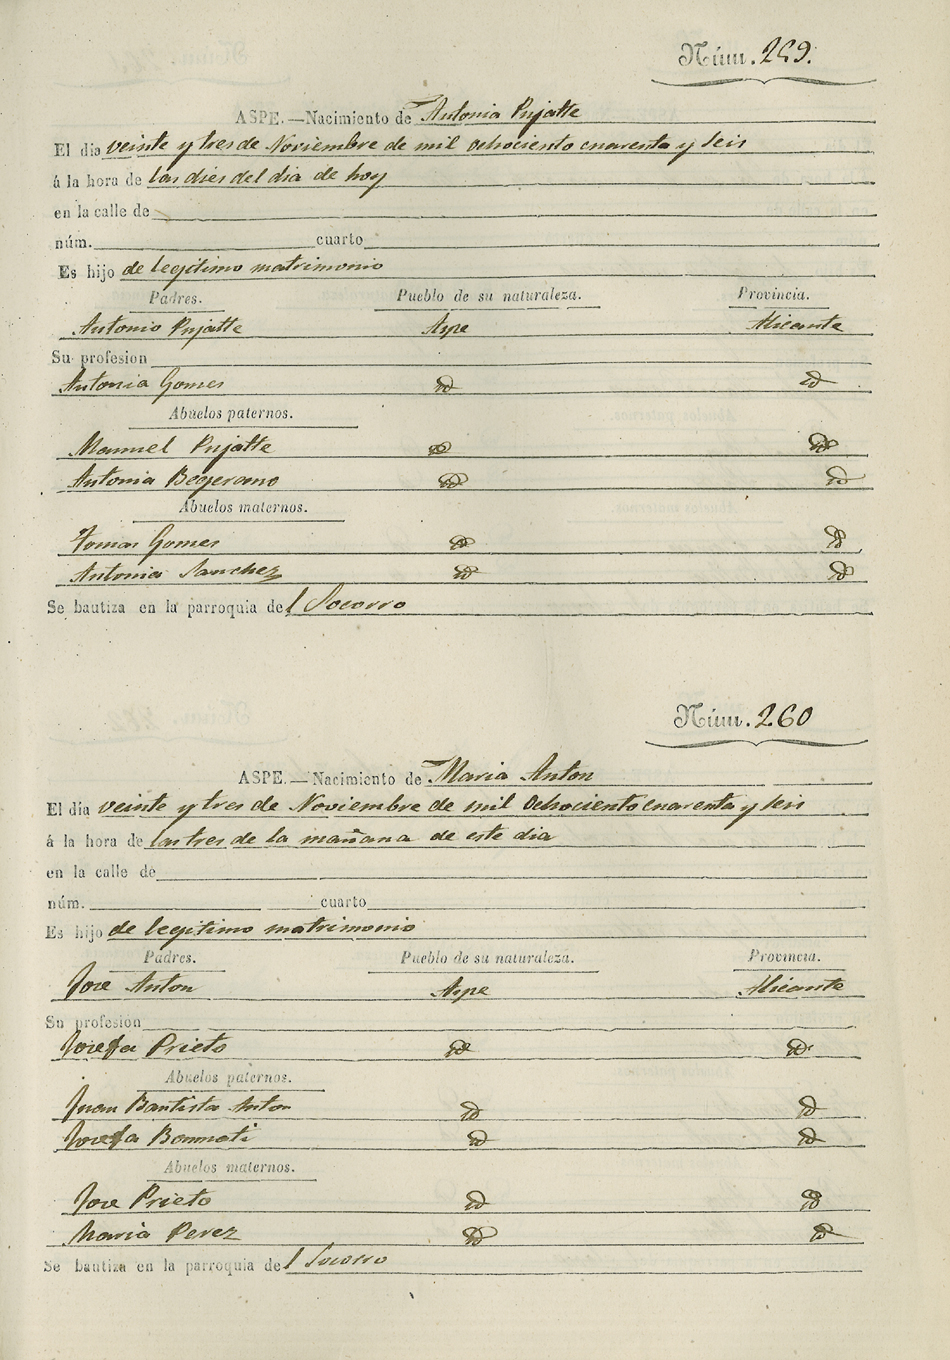 Núm. 259.
ASPE.—Nacimiento de Antonia Pujalte
El dia veinte y tres de Noviembre de mil ochociento cuarenta y seis
á la hora de las dies del dia de hoy
en la calle de
núm. cuarto
Es hijo de legitimo matrimonio
Padres. Pueblo de su naturaleza. Provincia.
Antonio Pujalte Aspe Alicante
Su profesion
Antonia Gomes id id
Abuelos paternos.
Manuel Pujalte id id
Antonia Begerano id id
Abuelos maternos.
Tomas Gomes id id
Antonia Sanchez id id
Se bautiza en la parroquia del Socorro
Núm. 260
ASPE.—Nacimiento de Maria Anton
El día veinte y tres de Noviembre de mil Ochociento cuarenta y seis
á la hora de las tres de la mañana de este dia
en la calle de
núm. cuarto
Es hijo de legitimo matrimonio
Padres. Pueblo de su naturaleza. Provincia.
Jose Anton Aspe Alicante
Su profesion
Josefa Prieto id id
Abuelos paternos.
Juan Bautista Anton id id
Josefa Bonmati id id
Abuelos maternos.
Jose Prieto id id
Maria Perez id id
Se bautiza en la parroquia del Socorro